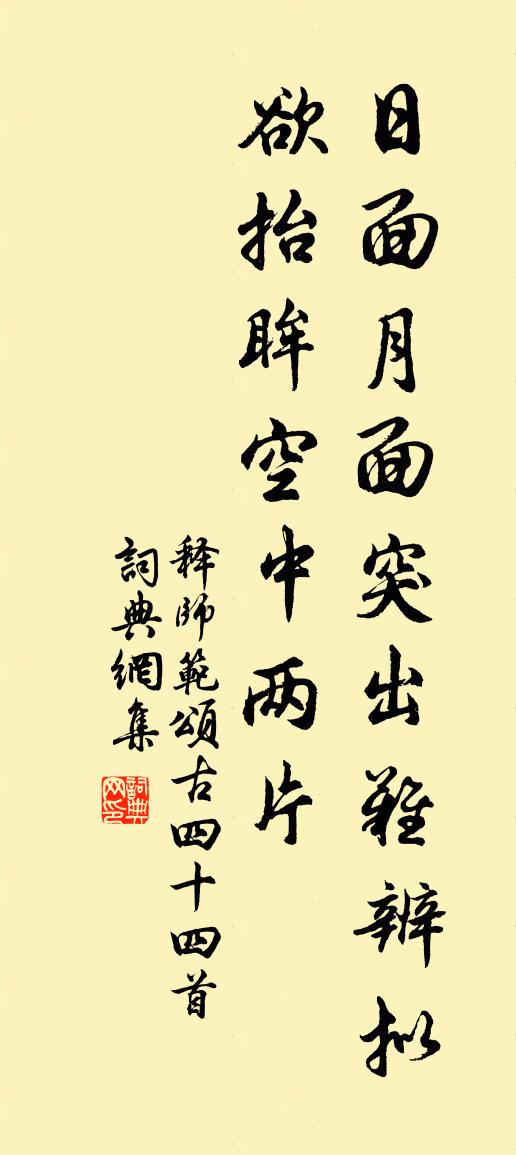 日面月面突出难辨拟
欲抬眸空中两片
释师範頌古四十四首
詞典網集
詞典网印